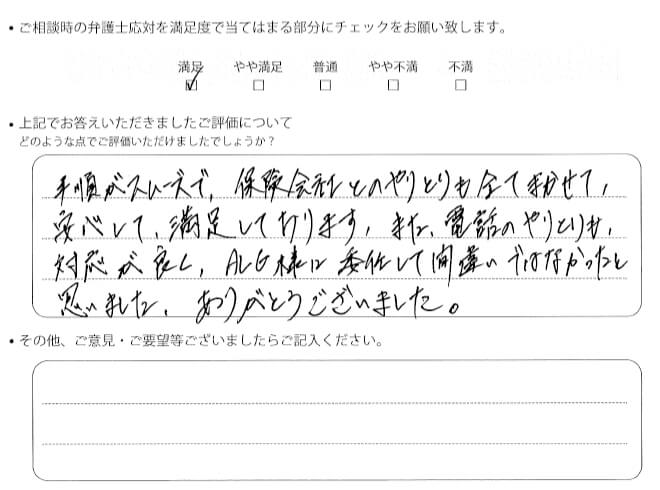 • ご相談時の弁護士応対を満足度で当てはまる部分にチェックをお願い致します。
満足 やや満足 普通 やや不満 不満
☑ □ □ □ □
• 上記でお答えいただきましたご評価について
どのような点でご評価いただけましたでしょうか？
手順がスムーズで、保険会社とのやりとりも全てまかせて、
安心して、満足しております。また、電話のやりとりも、
対応が良く、ALG様に委任して間違いではなかったと
思いました。ありがとうございました。
• その他、ご意見・ご要望等ございましたらご記入ください。